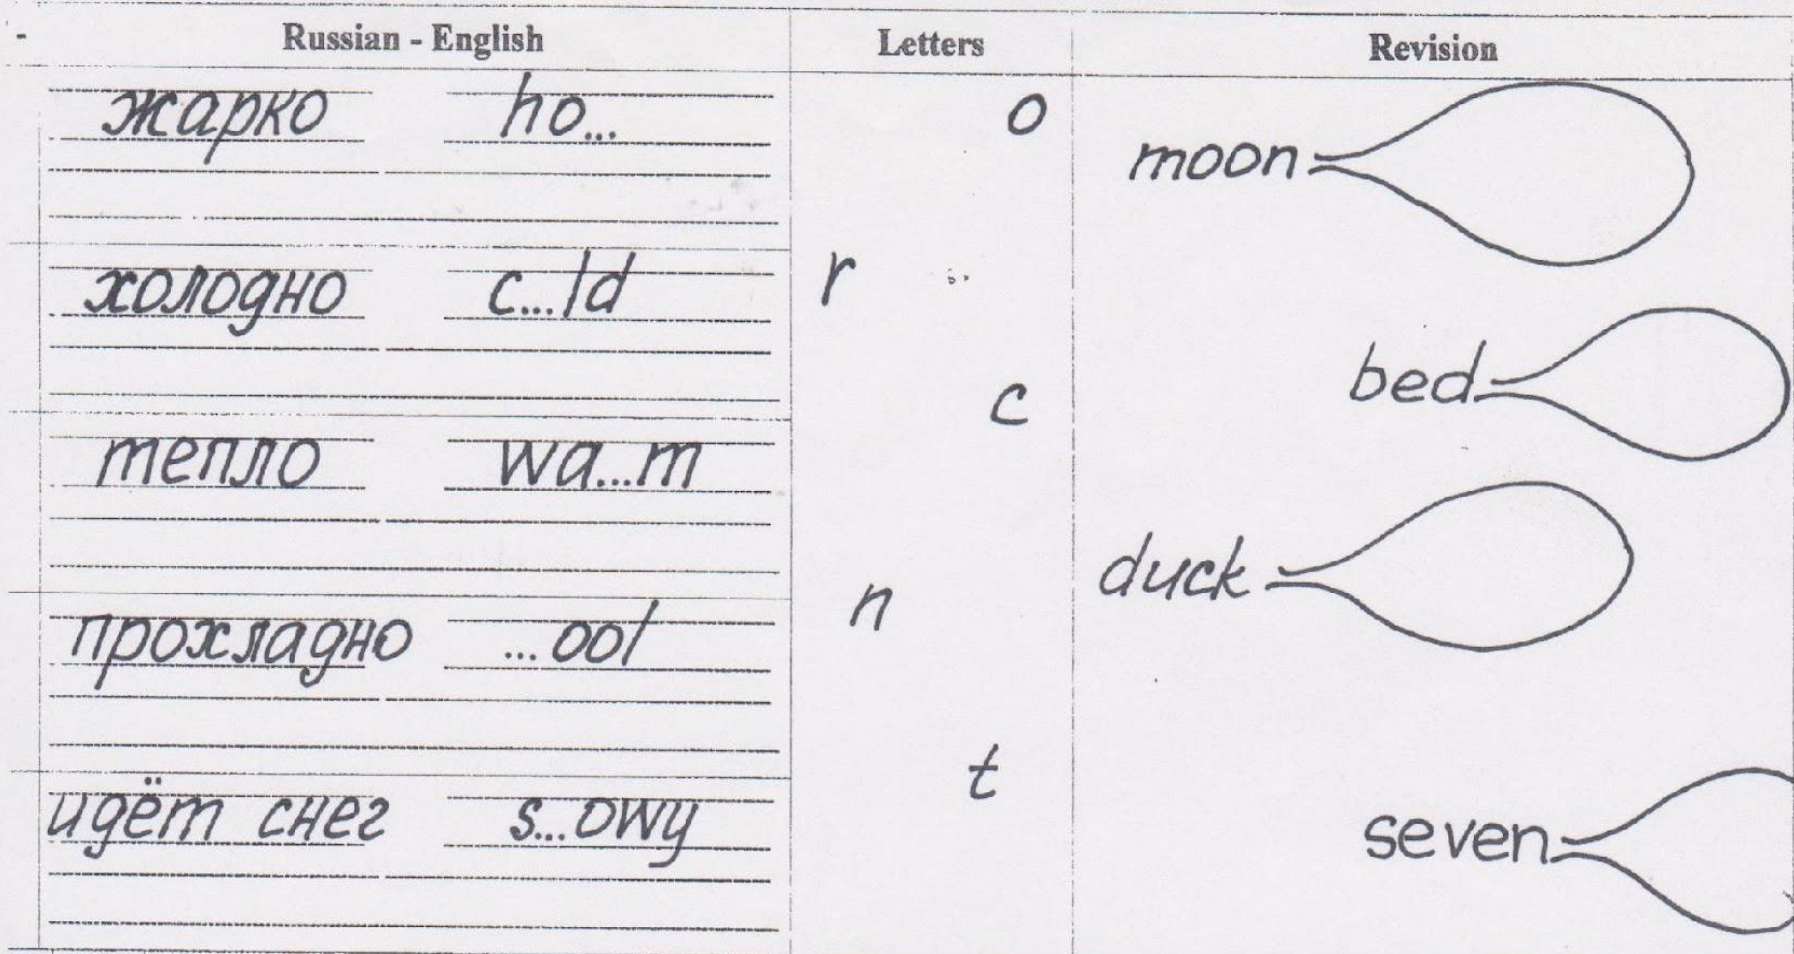 Russian - English Letters Revision
жарко ho... o
moon
холодно c...ld r
bed
c
тепло wa...m
duck
n
прохладно ...ool
t
идёт снег s...owy
seven